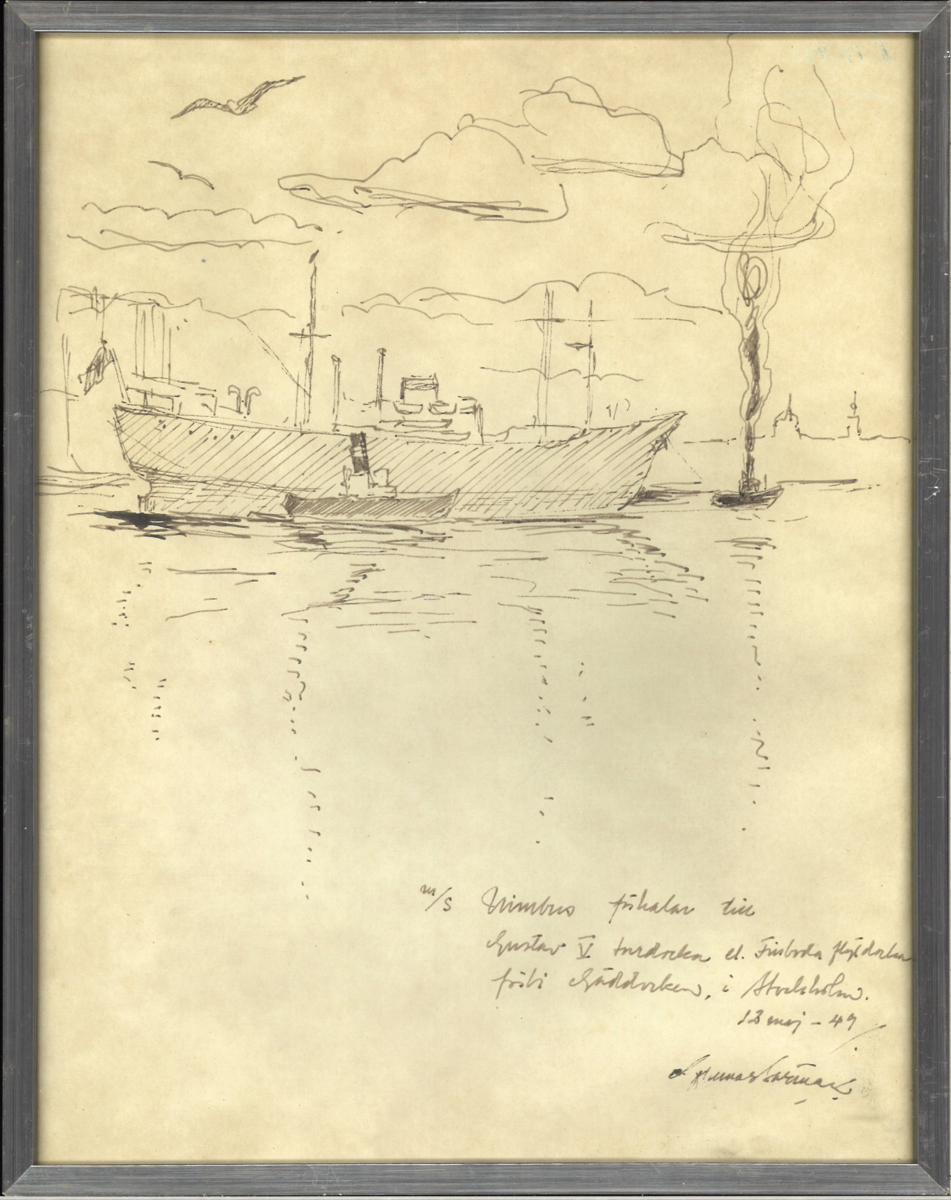 m/s Nimbus förhalar till
Gustav V torrdocka el. Finboda flytdocka
förbi Gäddviken, i Stockholm.
13 maj - 49